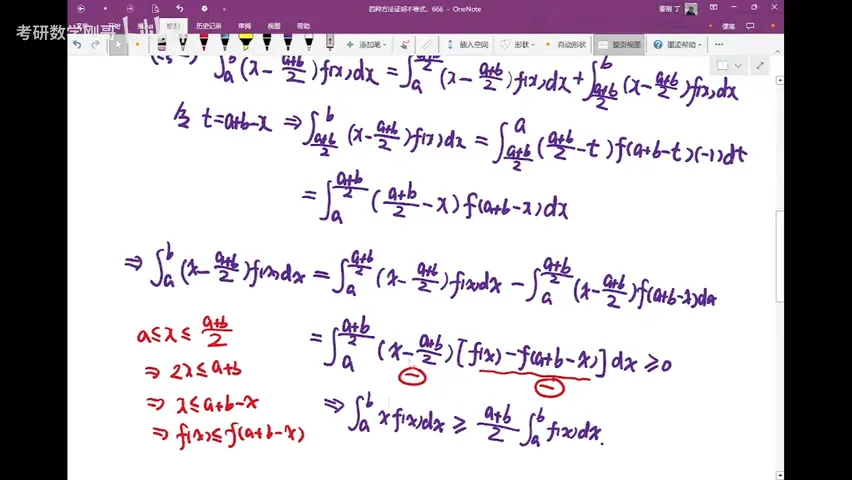 四种方法证明不等式、666 - OneNote
考研数学刚哥
历史记录
添加笔
插入空间
形状
自动形状
整页视图
重播帮助
便笺
∫_a^b (x - (a+b)/2) f(x)dx = ∫_a^{(a+b)/2} (x - (a+b)/2) f(x)dx + ∫_{(a+b)/2}^b (x - (a+b)/2) f(x)dx
令 t=a+b-x ⇒ ∫_{(a+b)/2}^b (x - (a+b)/2) f(x)dx = ∫_{(a+b)/2}^a ((a+b)/2 - t) f(a+b-t)(-1)dt
= ∫_a^{(a+b)/2} ((a+b)/2 - x) f(a+b-x)dx
⇒ ∫_a^b (x - (a+b)/2) f(x)dx = ∫_a^{(a+b)/2} (x - (a+b)/2) f(x)dx - ∫_a^{(a+b)/2} (x - (a+b)/2) f(a+b-x)dx
a≤x≤(a+b)/2
= ∫_a^{(a+b)/2} (x - (a+b)/2) [f(x) - f(a+b-x)] dx ≥ 0
⇒ 2x≤a+b
⇒ x≤a+b-x
⇒ f(x)≤f(a+b-x)
⇒ ∫_a^b x f(x)dx ≥ (a+b)/2 ∫_a^b f(x)dx.